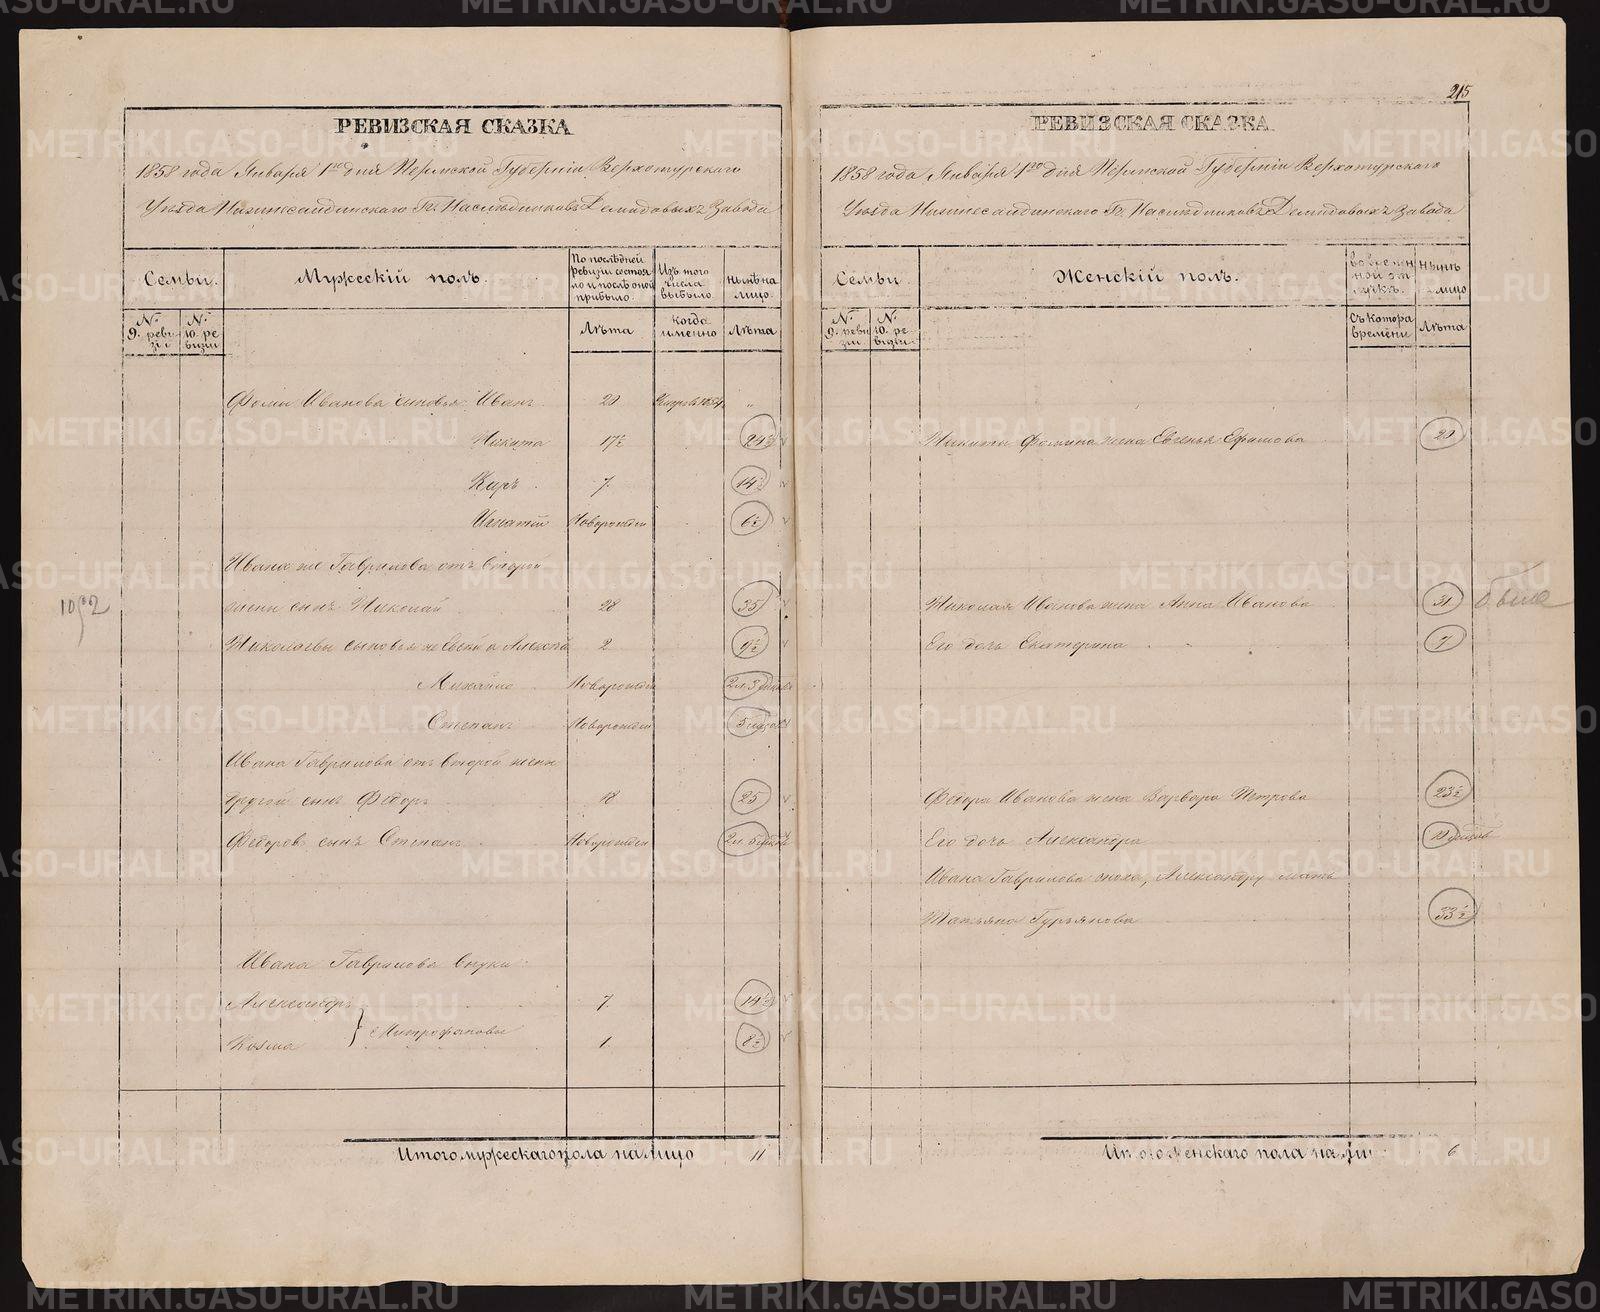 РЕВИЗСКАЯ СКАЗКА
1858 года Января 1го дня Пермской Губернiи Верхотурскаго
Уѣзда Нижнесалдинскаго Гг. Наслѣдниковъ Демидовыхъ Завода
Семьи.
Мужескiй полъ.
По послѣдней ревизiи состояло и послѣ оной прибыло.
Изъ того числа выбыло.
Нынѣ на лицо.
№ 9. ревизiи
№ 10. ревизiи
Лѣта
когда именно
Лѣта
Фомы Иванова сыновья Иванъ 20 1854 "
Никита 17½ 24½
Киръ 7. 14½
Игнатiй Новорожден 6½
Ивана же Гаврилова отъ второй
жены сынъ Николай 28 35
Николаевы сыновья 2 9½
Михайло Новорожден 2 л. 3
Степанъ Новорожден 5
Ивана Гаврилова отъ второй жены
другой сынъ Федоръ 18 25
Федоровъ сынъ Степанъ Новорожден 2 л. 5
Ивана Гаврилова внуки
Александръ 7 14½
Козма } Митрофановы 1 8½
Итого мужескаго пола на лицо 11
1092
215
РЕВИЗСКАЯ СКАЗКА
1858 года Января 1го дня Пермской Губернiи Верхотурскаго
Уѣзда Нижнесалдинскаго Гг. Наслѣдниковъ Демидовыхъ Завода
Семьи
Женскiй полъ.
во временной отлучкѣ.
Нынѣ на лицо
№ 9. ревизiи
№ 10. ревизiи
Съ котора времени
Лѣта
Никиты Фомина жена Евгенья Ефимова 20
Николая Иванова жена Анна Иванова 31
Его дочь Екатерина 7
Федора Иванова жена Варвара Петрова 23½
Его дочь Александра
Ивана Гаврилова сноха, Александру мать
Татьяна Гурьянова 33½
Итого женскаго пола на лиц 6
METRIKI.GASO-URAL.RU